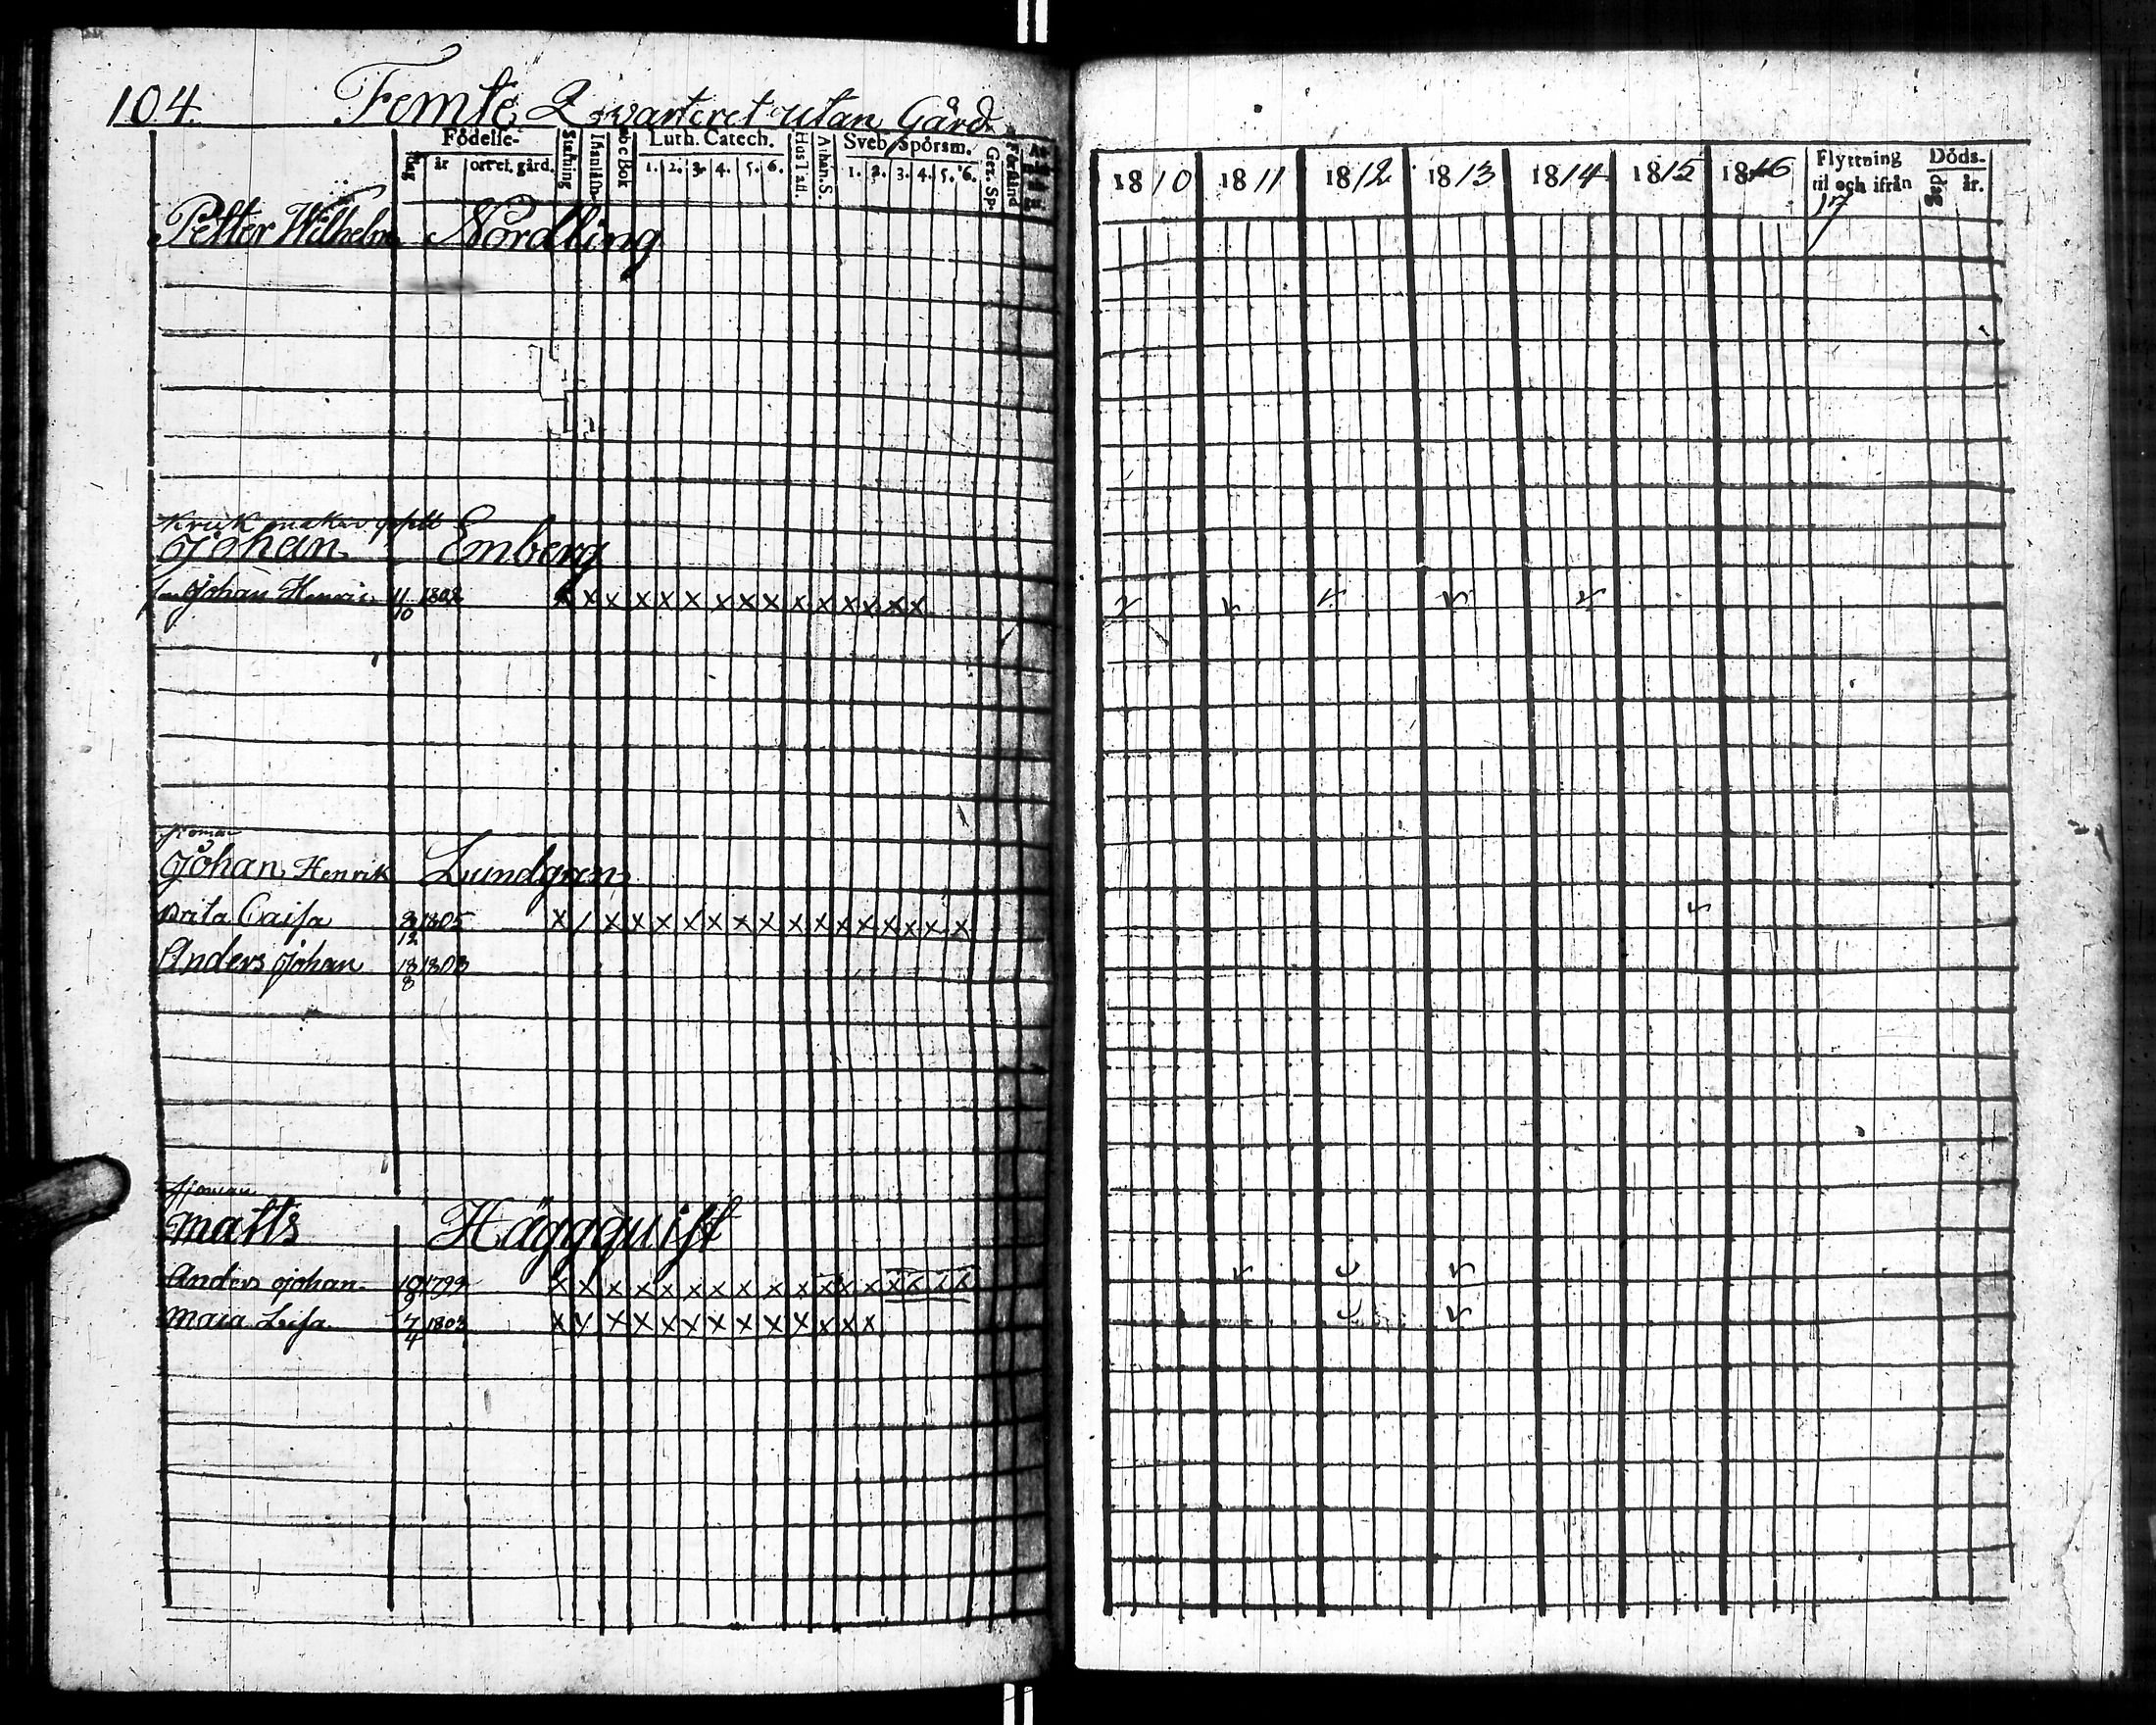 104. Femte Qwarteret utan Gård
Födelse- Stafning Innanläsn. abc Bok Luth. Catech. Hus Tafl. Athan. S. Sveb. Spörsm. Gez. Sp. Förstånd
dag år ort el. gård. 1. 2. 3. 4. 5. 6. 1. 2. 3. 4. 5. 6.
1810 1811 1812 1813 1814 1815 1816 Flyttning til och ifrån Döds- dag år.
17
Petter Wilhelm Nordling
Kruk makar
Johan Emberg
Johan Henric 11/10 1802 x x x x x x x x x x x x x x x
Sjöman
Johan Henrik Lundgren
Brita Caisa 8/12 1805 x / x x x x x x x x x x x x x x x
Anders Johan 18/8 1803
Sjöman
Matts Häggquist
Anders Johan 18/9 1799 x x x x x x x x x x x x x x x x x
Maia Lisa 7/4 1803 x x x x x x x x x x x x x